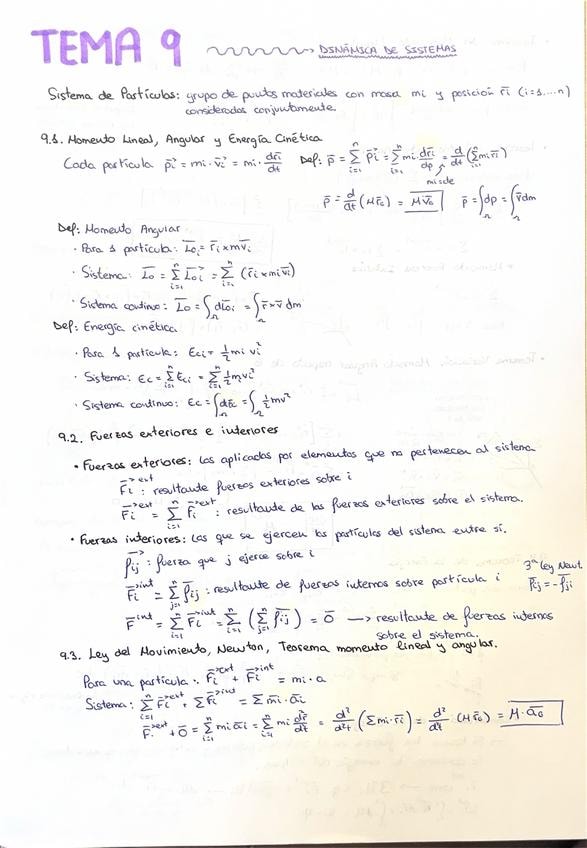 TEMA 9 → DINÁMICA DE SISTEMAS
Sistema de Partículas: grupo de puntos materiales con masa mi y posición r̄i (i=1....n)
consideradas conjuntamente.
9.1. Momento Lineal, Angular y Energía Cinética
Cada partícula p⃗i = mi·v⃗i = mi·dr̄i/dt Def: p̄ = Σ(i=1→n) p⃗i = Σ(i=1→n) mi·dr̄i/dp = d/dt(Σ(i=1→n) mi r̄i)
p̄ = d/dt(M r̄G) = M v̄G p̄ = ∫Ω dp = ∫Ω v̄ dm
Def: Momento Angular
· Para 1 partícula: L̄oi = r̄i × m v̄i
· Sistema: L̄o = Σ(i=1→n) L⃗oi = Σ(i=1→n) (r̄i × mi v̄i)
· Sistema continuo: L̄o = ∫Ω dL̄oi = ∫Ω r̄ × v̄ dm
Def: Energía cinética
· Para 1 partícula: Eci = 1/2 mi vi²
· Sistema: Ec = Σ(i=1→n) Eci = Σ(i=1→n) 1/2 mi vi²
· Sistema continuo: Ec = ∫Ω dEc = ∫Ω 1/2 mv²
9.2. Fuerzas exteriores e interiores
• Fuerzas exteriores: Las aplicadas por elementos que no pertenecen al sistema
F⃗i ext : resultante fuerzas exteriores sobre i
F⃗i ext = Σ(i=1→n) F⃗i ext : resultante de las fuerzas exteriores sobre el sistema.
• Fuerzas interiores: Las que se ejercen las partículas del sistema entre sí.
f⃗ij : fuerza que j ejerce sobre i
F⃗i int = Σ(j=1→n) f̄ij : resultante de fuerzas internas sobre partícula i 3ª Ley Newt.
f̄ij = -f̄ji
F̄ int = Σ(i=1→n) F⃗i int = Σ(i=1→n) (Σ(j=1→n) f̄ij) = 0̄ → resultante de fuerzas internas
sobre el sistema.
9.3. Ley del Movimiento, Newton, Teorema momento lineal y angular.
Para una partícula: F⃗i ext + F⃗i int = mi·a
Sistema: Σ(i=1→n) F⃗i ext + ΣF⃗i int = Σ mi·āi
F⃗ ext + 0̄ = Σ(i=1→n) mi āi = Σ(i=1→n) mi d²r̄/dt = d²/d²t (Σmi·r̄i) = d²/dt (M r̄G) = M·āG